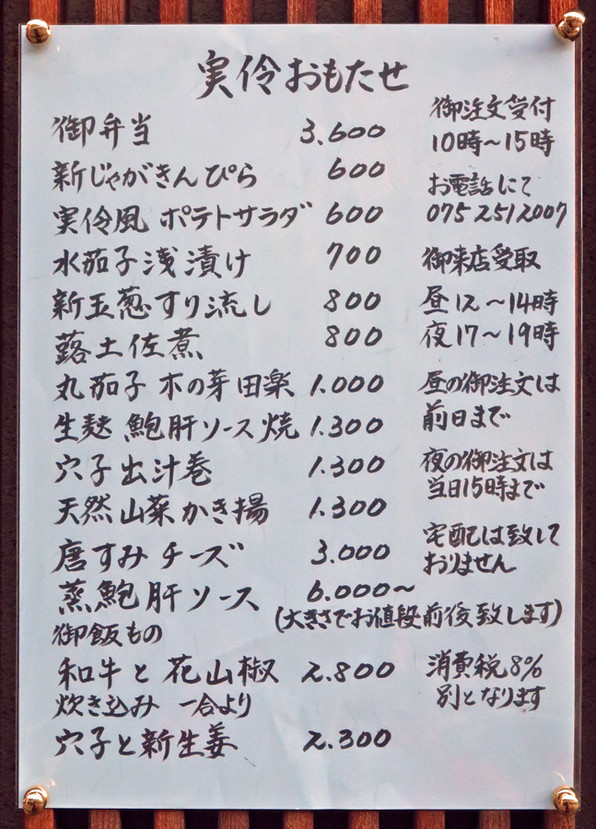 実伶おもたせ
御弁当 3.600
新じゃがきんぴら 600
実伶風 ポテトサラダ 600
水茄子浅漬け 700
新玉葱すり流し 800
蕗土佐煮 800
丸茄子 木の芽田楽 1.000
生麩 鮑肝ソース焼 1.300
穴子出汁巻 1.300
天然山菜かき揚 1.300
唐すみチーズ 3.000
蒸鮑肝ソース 6.000〜
(大きさでお値段前後致します)
御飯もの
和牛と花山椒 2.800
炊き込み 一合より
穴子と新生姜 2.300
御注文受付
10時〜15時
お電話にて
075 251 2007
御来店受取
昼12〜14時
夜17〜19時
昼の御注文は
前日まで
夜の御注文は
当日15時まで
宅配は致して
おりません
消費税8%
別となります